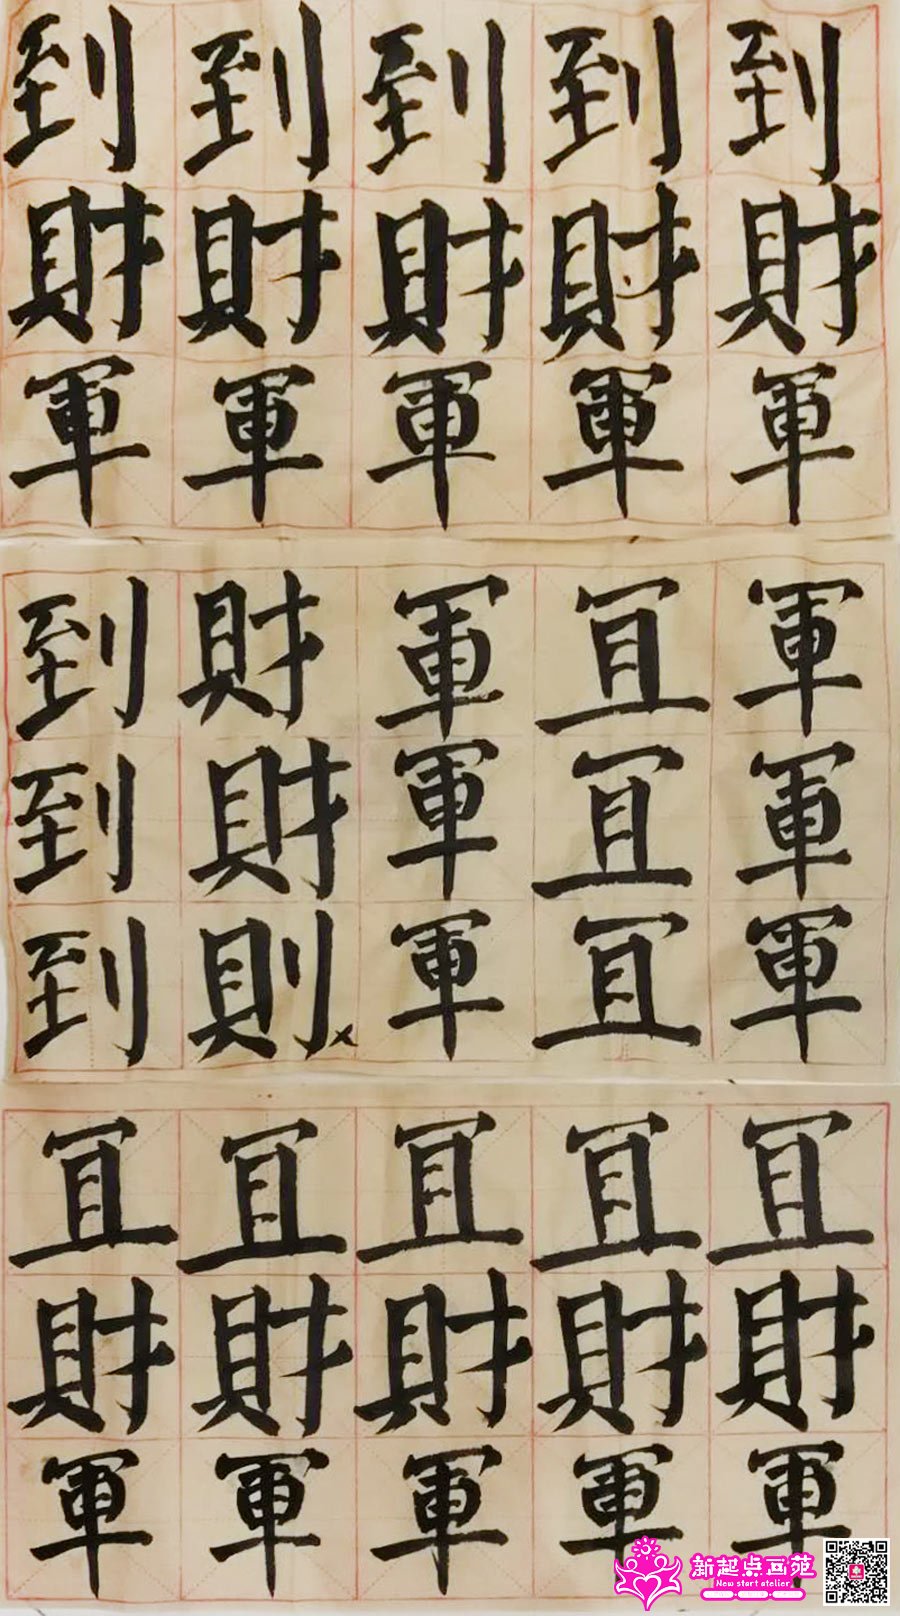 到到到到到
財財財財財
軍軍軍軍軍
到財軍冝軍
到財軍冝軍
到則軍冝軍
冝冝冝冝冝
財財財財財
軍軍軍軍軍
新起点画苑
New start atelier